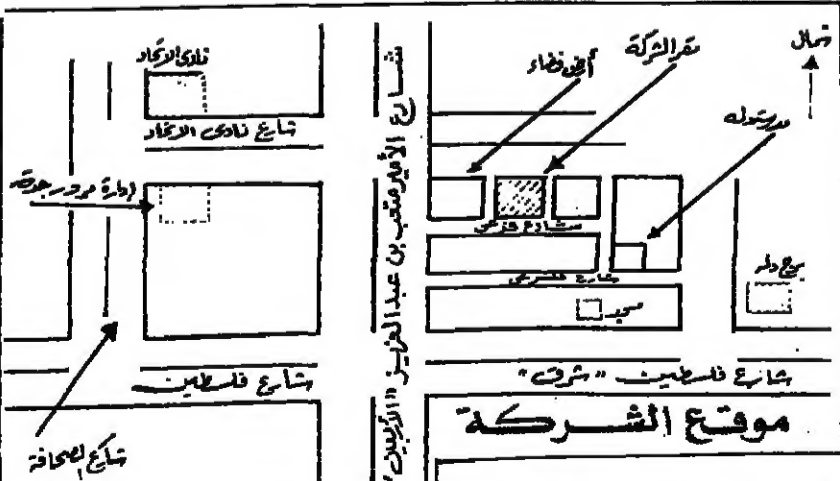 شمال
مقر الشركة
أرض فضاء
نادي الاتحاد
شارع نادي الاتحاد
إدارة مرور جدة
شارع الأمير متعب بن عبد العزيز "الأربعين"
شارع فرعي
شارع فرعي
مسجد
برج دله
شارع فلسطين
شارع فلسطين "شرق"
موقع الشركة
شارع الصحافة